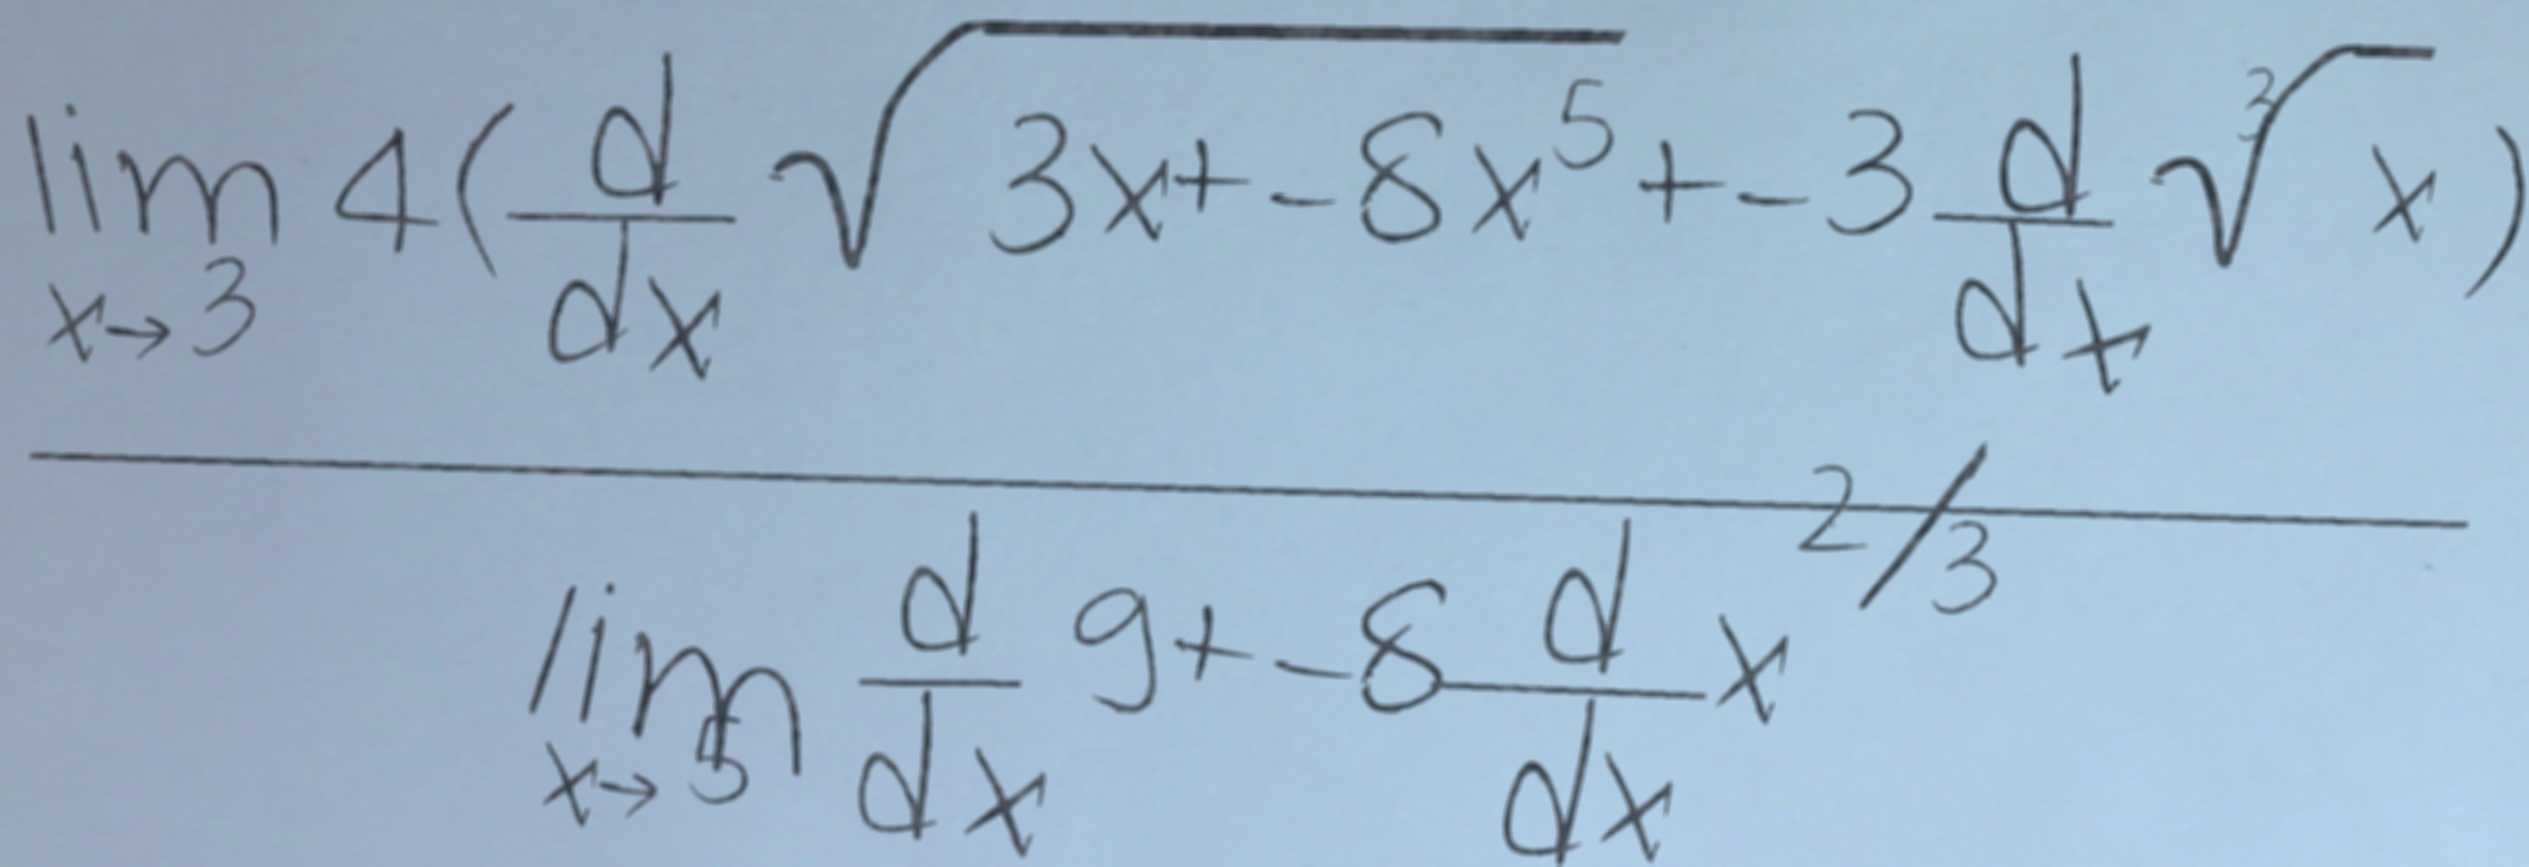 \frac{\lim_{x \to 3} 4(\frac{d}{dx} \sqrt{3x+-8x^5}+-3\frac{d}{dx} \sqrt[3]{x})}{\lim_{x \to 5} \frac{d}{dx} 9+-8\frac{d}{dx} x^{2/3}}